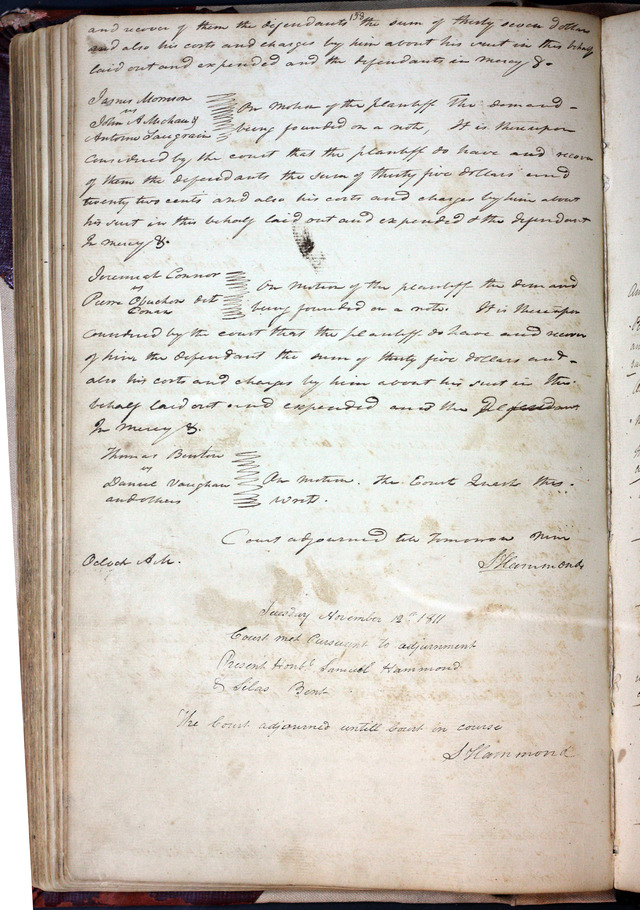 138
and recover of them the defendants the sum of thirty seven dollars
and also his costs and charges by him about his suit in this behalf
laid out and expended and the defendants in mercy &.
James Morrison
vs
John A Michau &
Antoine Saugrain
On motion of the plantiff The demand
being founded on a note, It is thereupon
Considered by the court that the plantiff do have and recover
of them the defendants the sum of thirty five dollars and
twenty two cents and also his costs and charges by him about
his suit in this behalf laid out and expended & the defendant
In mercy &.
Jeremiah Connor
vs
Pierre dit
On motion of the plantiff the demand
being founded on a note. It is thereupon
Considered by the court that the plantiff do have and recover
of him the defendant the sum of thirty five dollars and
also his costs and charges by him about his suit in this
behalf laid out and expended and the Defendant
In mercy &.
Thomas Benton
vs
Daniel Vaughan
and others
On motion. the Court Quash this
writ.
Court adjourned till tomorrow nine
Oclock A.M.
S Hammond
Tuesday November 12th 1811
Court met Pursuant to adjurnment
Present Honble Samuel Hammond
& Silas Bent
The Court adjourned untill Court in course
S Hammond